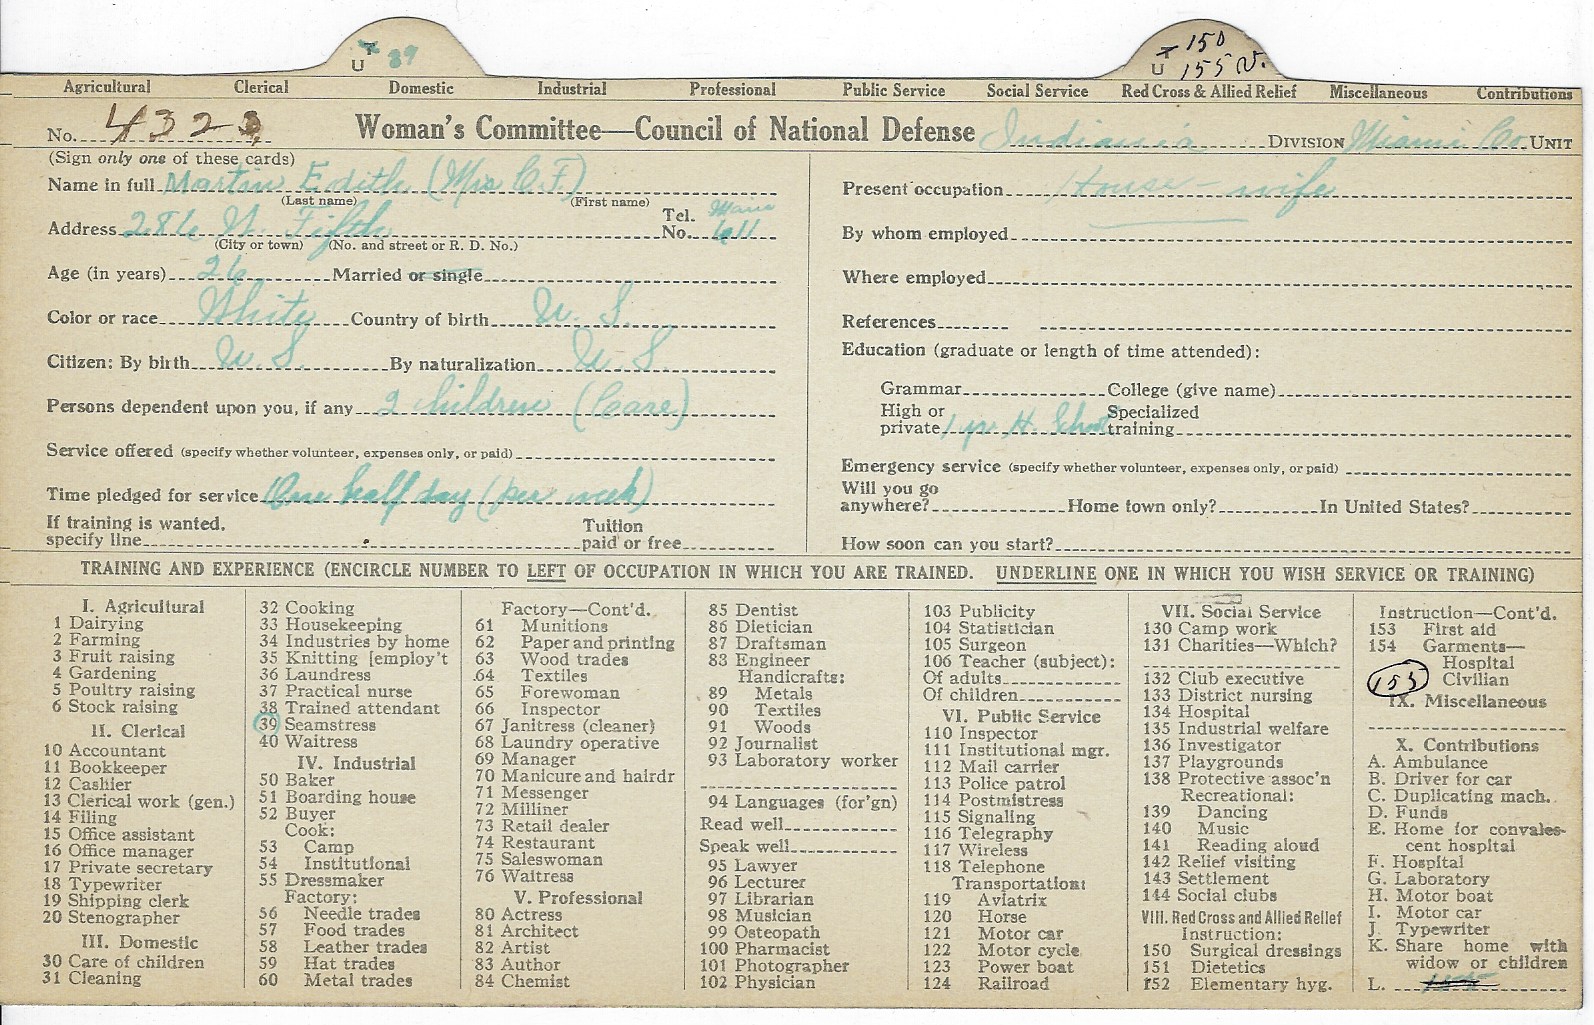 T
U 39
T 150
U 155 V.
Agricultural Clerical Domestic Industrial Professional Public Service Social Service Red Cross & Allied Relief Miscellaneous Contributions
No. 4323 Woman's Committee—Council of National Defense Indiania DIVISION Miami Co UNIT
(Sign only one of these cards)
Name in full Martin Edith (Mrs C.F)
(Last name) (First name)
Address 286 W. Fifth Tel. No. Main 611
(City or town) (No. and street or R. D. No.)
Age (in years) 26 Married or single
Color or race White Country of birth U. S.
Citizen: By birth U. S. By naturalization U S
Persons dependent upon you, if any 2 hildren (Care)
Service offered (specify whether volunteer, expenses only, or paid)
Time pledged for service One half day (per week)
If training is wanted, Tuition
specify line paid or free
Present occupation House-wife
By whom employed
Where employed
References
Education (graduate or length of time attended):
Grammar College (give name)
High or Specialized
private 1 yr. H. School training
Emergency service (specify whether volunteer, expenses only, or paid)
Will you go
anywhere? Home town only? In United States?
How soon can you start?
TRAINING AND EXPERIENCE (ENCIRCLE NUMBER TO LEFT OF OCCUPATION IN WHICH YOU ARE TRAINED. UNDERLINE ONE IN WHICH YOU WISH SERVICE OR TRAINING)
I. Agricultural
1 Dairying
2 Farming
3 Fruit raising
4 Gardening
5 Poultry raising
6 Stock raising
II. Clerical
10 Accountant
11 Bookkeeper
12 Cashier
13 Clerical work (gen.)
14 Filing
15 Office assistant
16 Office manager
17 Private secretary
18 Typewriter
19 Shipping clerk
20 Stenographer
III. Domestic
30 Care of children
31 Cleaning
32 Cooking
33 Housekeeping
34 Industries by home
35 Knitting [employ't
36 Laundress
37 Practical nurse
38 Trained attendant
39 Seamstress
40 Waitress
IV. Industrial
50 Baker
51 Boarding house
52 Buyer
Cook:
53 Camp
54 Institutional
55 Dressmaker
Factory:
56 Needle trades
57 Food trades
58 Leather trades
59 Hat trades
60 Metal trades
Factory—Cont'd.
61 Munitions
62 Paper and printing
63 Wood trades
64 Textiles
65 Forewoman
66 Inspector
67 Janitress (cleaner)
68 Laundry operative
69 Manager
70 Manicure and hairdr
71 Messenger
72 Milliner
73 Retail dealer
74 Restaurant
75 Saleswoman
76 Waitress
V. Professional
80 Actress
81 Architect
82 Artist
83 Author
84 Chemist
85 Dentist
86 Dietician
87 Draftsman
83 Engineer
Handicrafts:
89 Metals
90 Textiles
91 Woods
92 Journalist
93 Laboratory worker
94 Languages (for'gn)
Read well
Speak well
95 Lawyer
96 Lecturer
97 Librarian
98 Musician
99 Osteopath
100 Pharmacist
101 Photographer
102 Physician
103 Publicity
104 Statistician
105 Surgeon
106 Teacher (subject):
Of adults
Of children
VI. Public Service
110 Inspector
111 Institutional mgr.
112 Mail carrier
113 Police patrol
114 Postmistress
115 Signaling
116 Telegraphy
117 Wireless
118 Telephone
Transportation:
119 Aviatrix
120 Horse
121 Motor car
122 Motor cycle
123 Power boat
124 Railroad
VII. Social Service
130 Camp work
131 Charities—Which?
132 Club executive
133 District nursing
134 Hospital
135 Industrial welfare
136 Investigator
137 Playgrounds
138 Protective assoc'n
Recreational:
139 Dancing
140 Music
141 Reading aloud
142 Relief visiting
143 Settlement
144 Social clubs
VIII. Red Cross and Allied Relief
Instruction:
150 Surgical dressings
151 Dietetics
152 Elementary hyg.
Instruction—Cont'd.
153 First aid
154 Garments—
Hospital
155 Civilian
IX. Miscellaneous
X. Contributions
A. Ambulance
B. Driver for car
C. Duplicating mach.
D. Funds
E. Home for convales-
cent hospital
F. Hospital
G. Laboratory
H. Motor boat
I. Motor car
J. Typewriter
K. Share home with
widow or children
L.